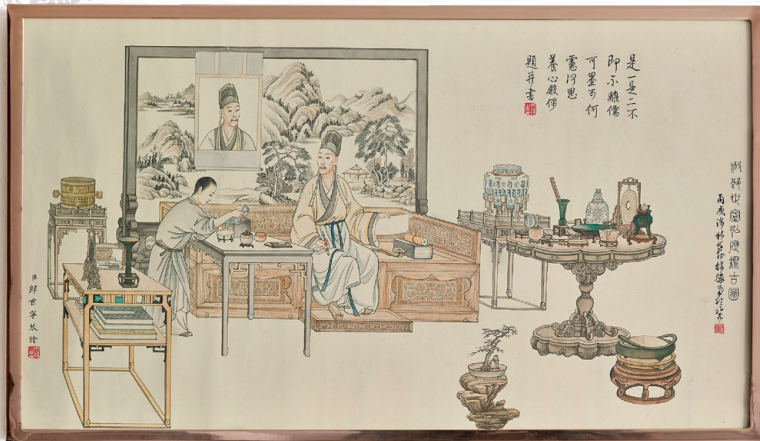 是一是二不
即不離儒
可墨可何
慮何思
養心殿偶
題并書
世寧弘曆鑑古圖
丙戌
臣郎世寧恭繪